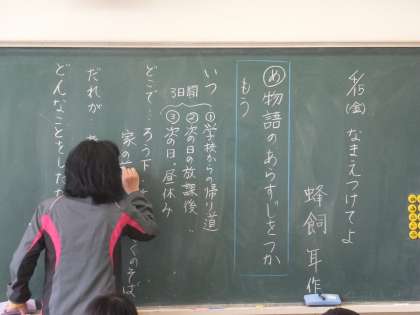 4/15(金) なまえつけてよ
蜂飼 耳 作
め 物語のあらすじをつかもう
いつ
3日間
①学校からの帰り道
②次の日の放課後
③次の日・昼休み
どこで…ろう下
家の
くのそば
だれが
どんなことをした